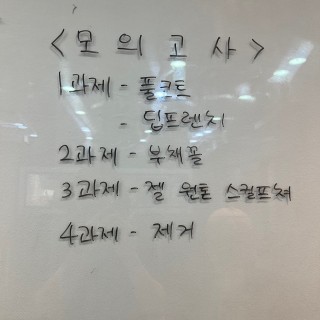 <모의고사>
1과제 - 풀코트
- 딥프렌치
2과제 - 부채꼴
3과제 - 젤 원톤 스컬프쳐
4과제 - 제거